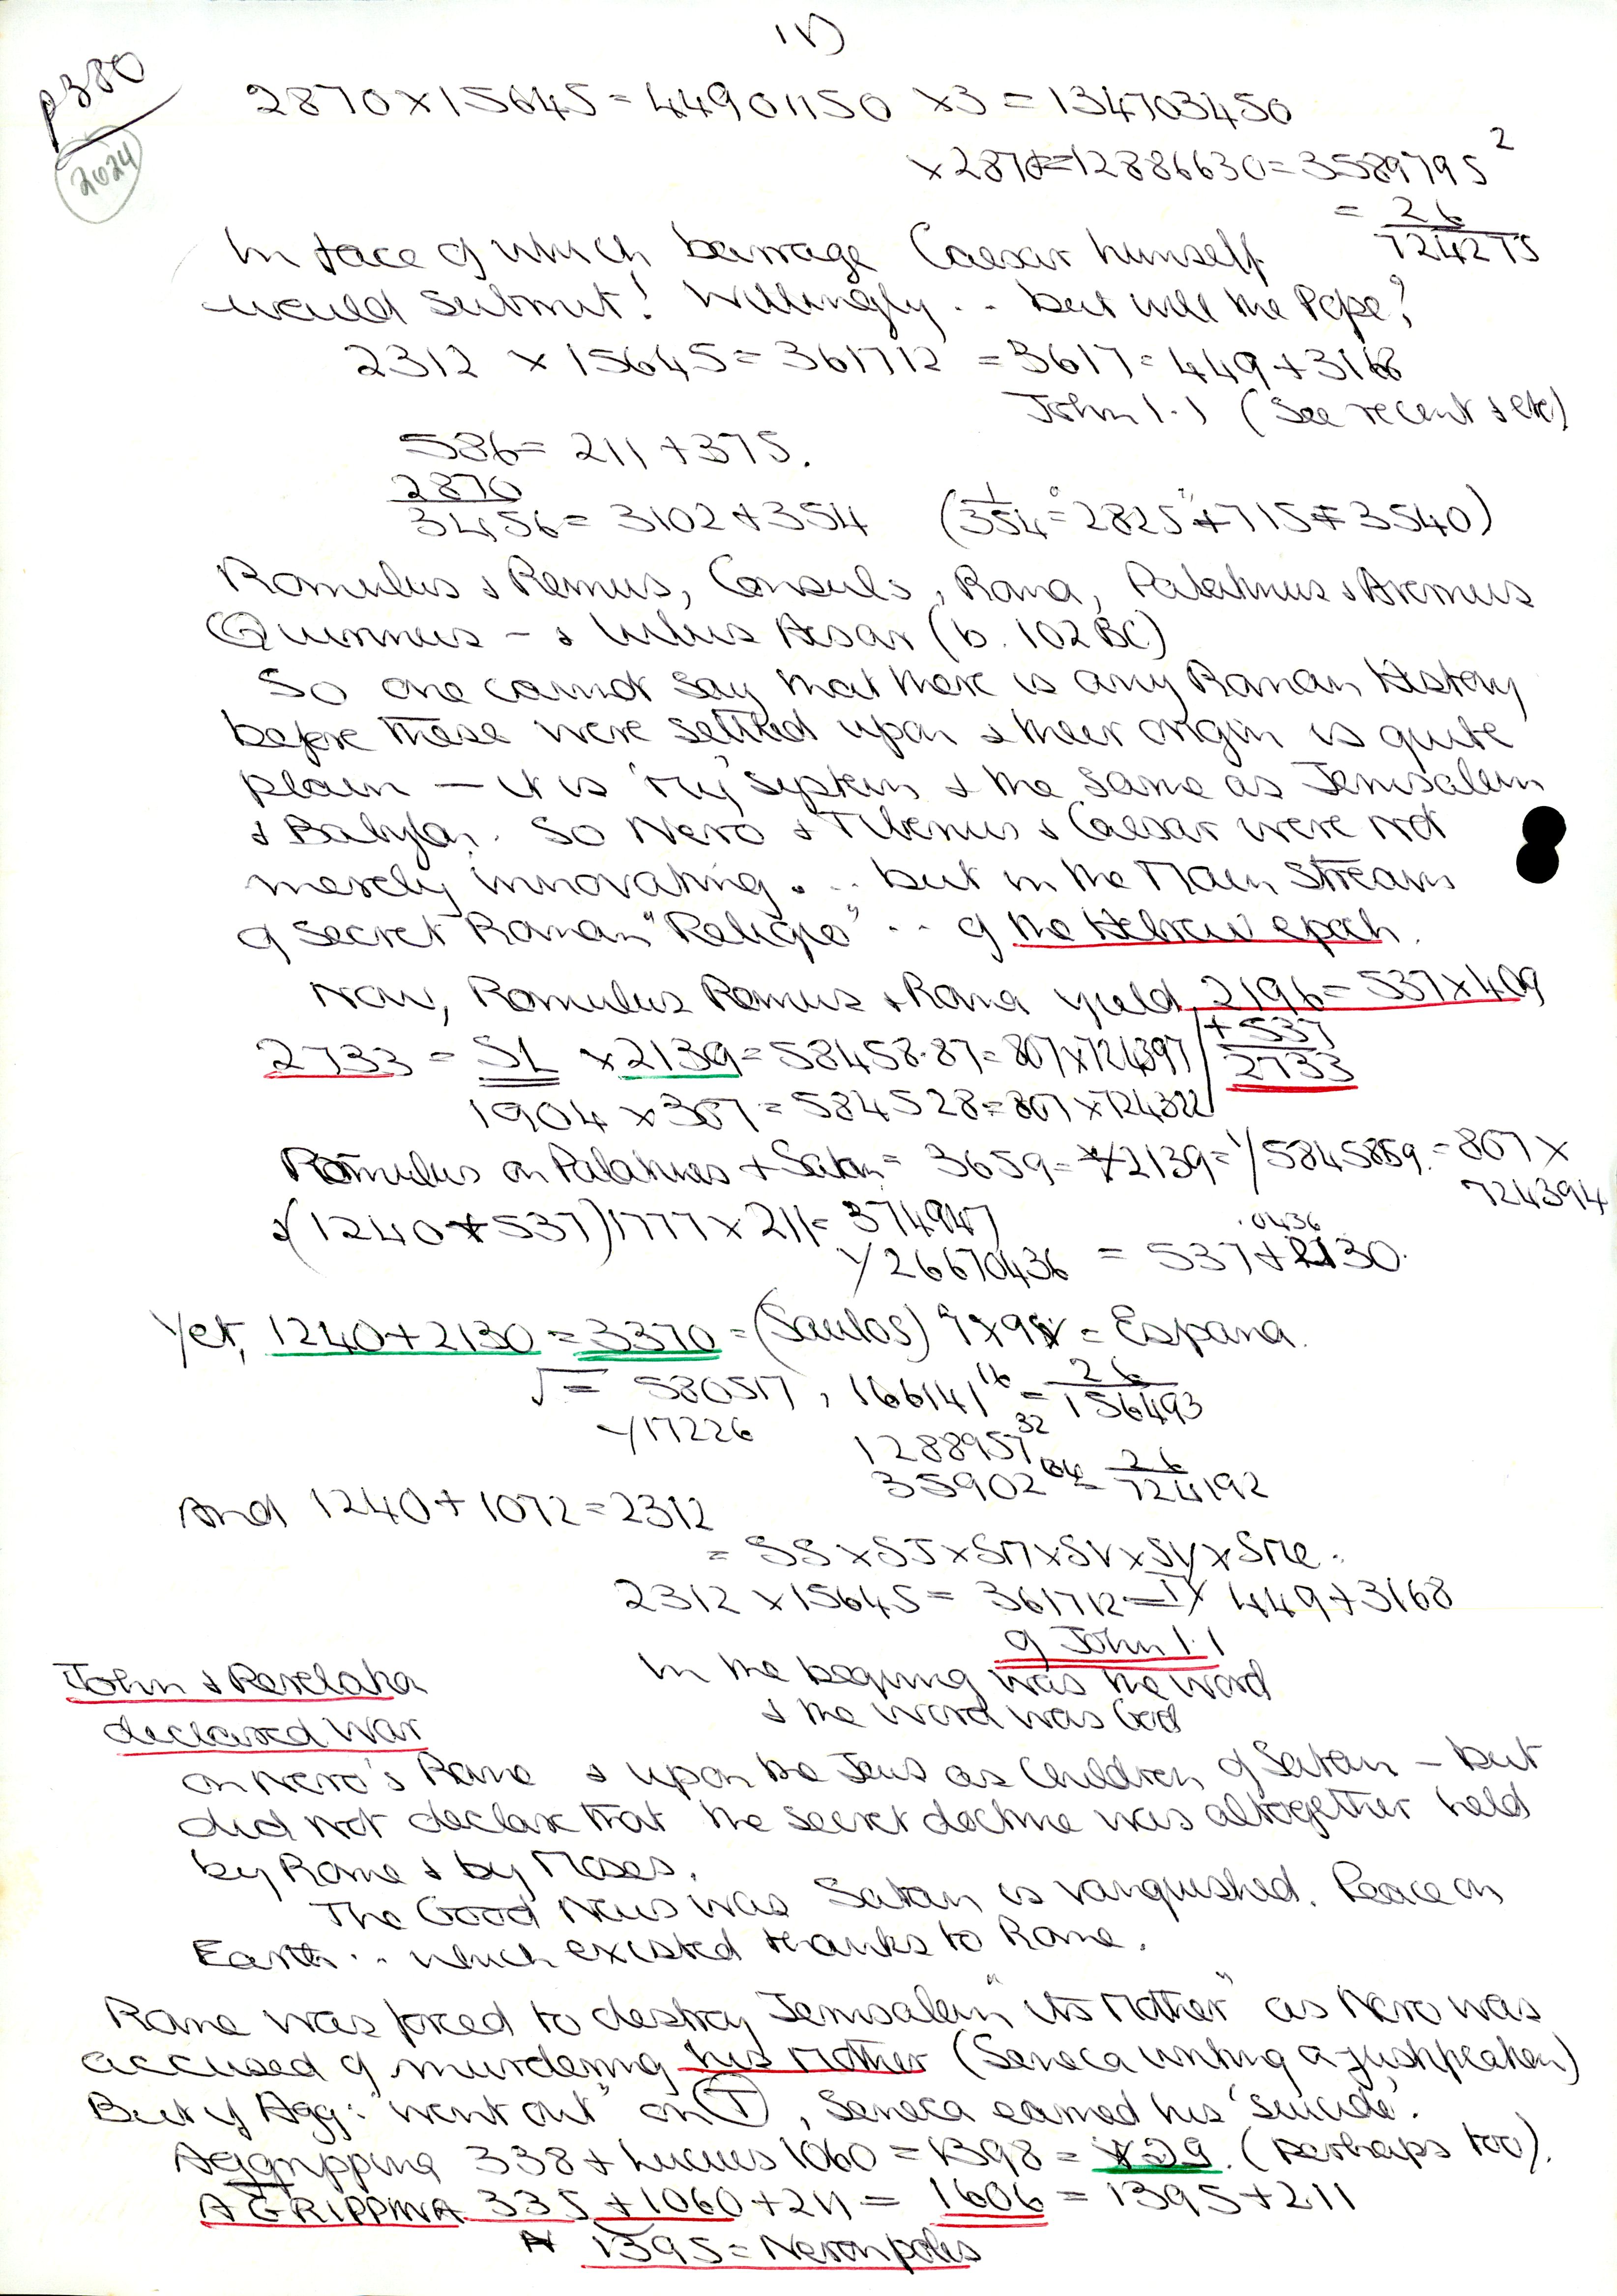 IV)
p380
2024
2870 x 15645 = 44901150 x3 = 134703450
x 2870 = 12886630 = 3589795²
= 26/724275
In face of which barrage Caesar himself
would submit! Willingly .. but will the Pope?
2312 x 15645 = 361712 = 3617 = 449 + 3168
John 1.1 (See recent & etc)
586 = 211 + 375.
2870
3456 = 3102 + 354 (1/354 = 2825 + 715 = 3540)
Romulus & Remus, Consuls, Roma, Palatinus & Aremus
Quirinus - & Iulius Aesar (b. 102 BC)
So one cannot say that there is any Roman History
before these were settled upon & their origin is quite
plain — it is 'my' system & the same as Jerusalem
& Babylon. So Nero & Tiberius & Caesar were not
merely innovating ... but in the Main Stream
of secret Roman "Religio" .. of the Hebrew epoch.
Now, Romulus Remus & Roma yield 2196 = 537 x 409
+ 537
2733
2733 = SL x 2139 = 58458.87 = 807 x 724397
1904 x 307 = 584528 = 807 x 724322
Romulus on Palatinus + Satan = 3659 = x 2139 = 1/5845859 = 807 x
724394
& (1240 + 537) 1777 x 211 = 374947
1/26670436 = 537 + 2130.
.0436
Yet, 1240 + 2130 = 3370 = (Saulos) 9 x 9 = Espana.
√ = 580517, 166141¹⁶ = 26/156493
1/17226
1288957³²
35902⁶⁴ = 26/724192
And 1240 + 1072 = 2312
= SS x SJ x SM x SV x SY x SMe.
2312 x 15645 = 361712 = 449 + 3168
of John 1.1
In the beginning was the word
& the word was God
John & Revelation
declared war
on Nero's Rome & upon the Jews as Children of Satan — but
did not declare that the secret doctrine was altogether held
by Rome & by Moses.
The Good News was Satan is vanquished. Peace on
Earth .. which existed thanks to Rome.
Rome was forced to destroy Jerusalem "its Mother" as Nero was
accused of murdering his Mother (Seneca writing a justification)
But if Agg: "went out" on T, Seneca earned his 'suicide'.
Aggrippina 338 + Lucius 1060 = 1398 = x 29. (perhaps too).
AGRIPPINA 335 + 1060 + 211 = 1606 = 1395 + 211
1395 = Neronpolis